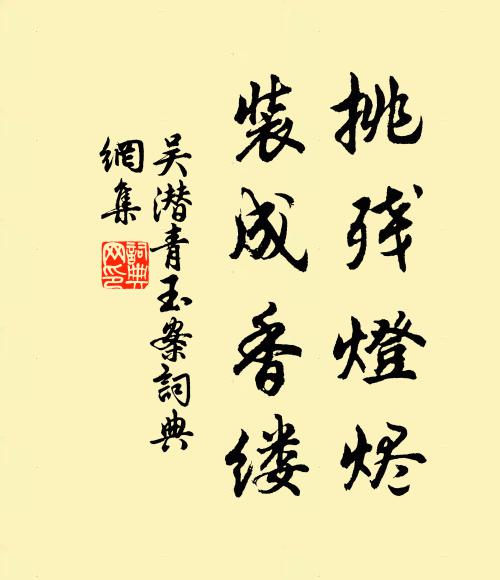 挑残燈烬
装成香缕
吴潜青玉案詞典
網集
詞典
网印